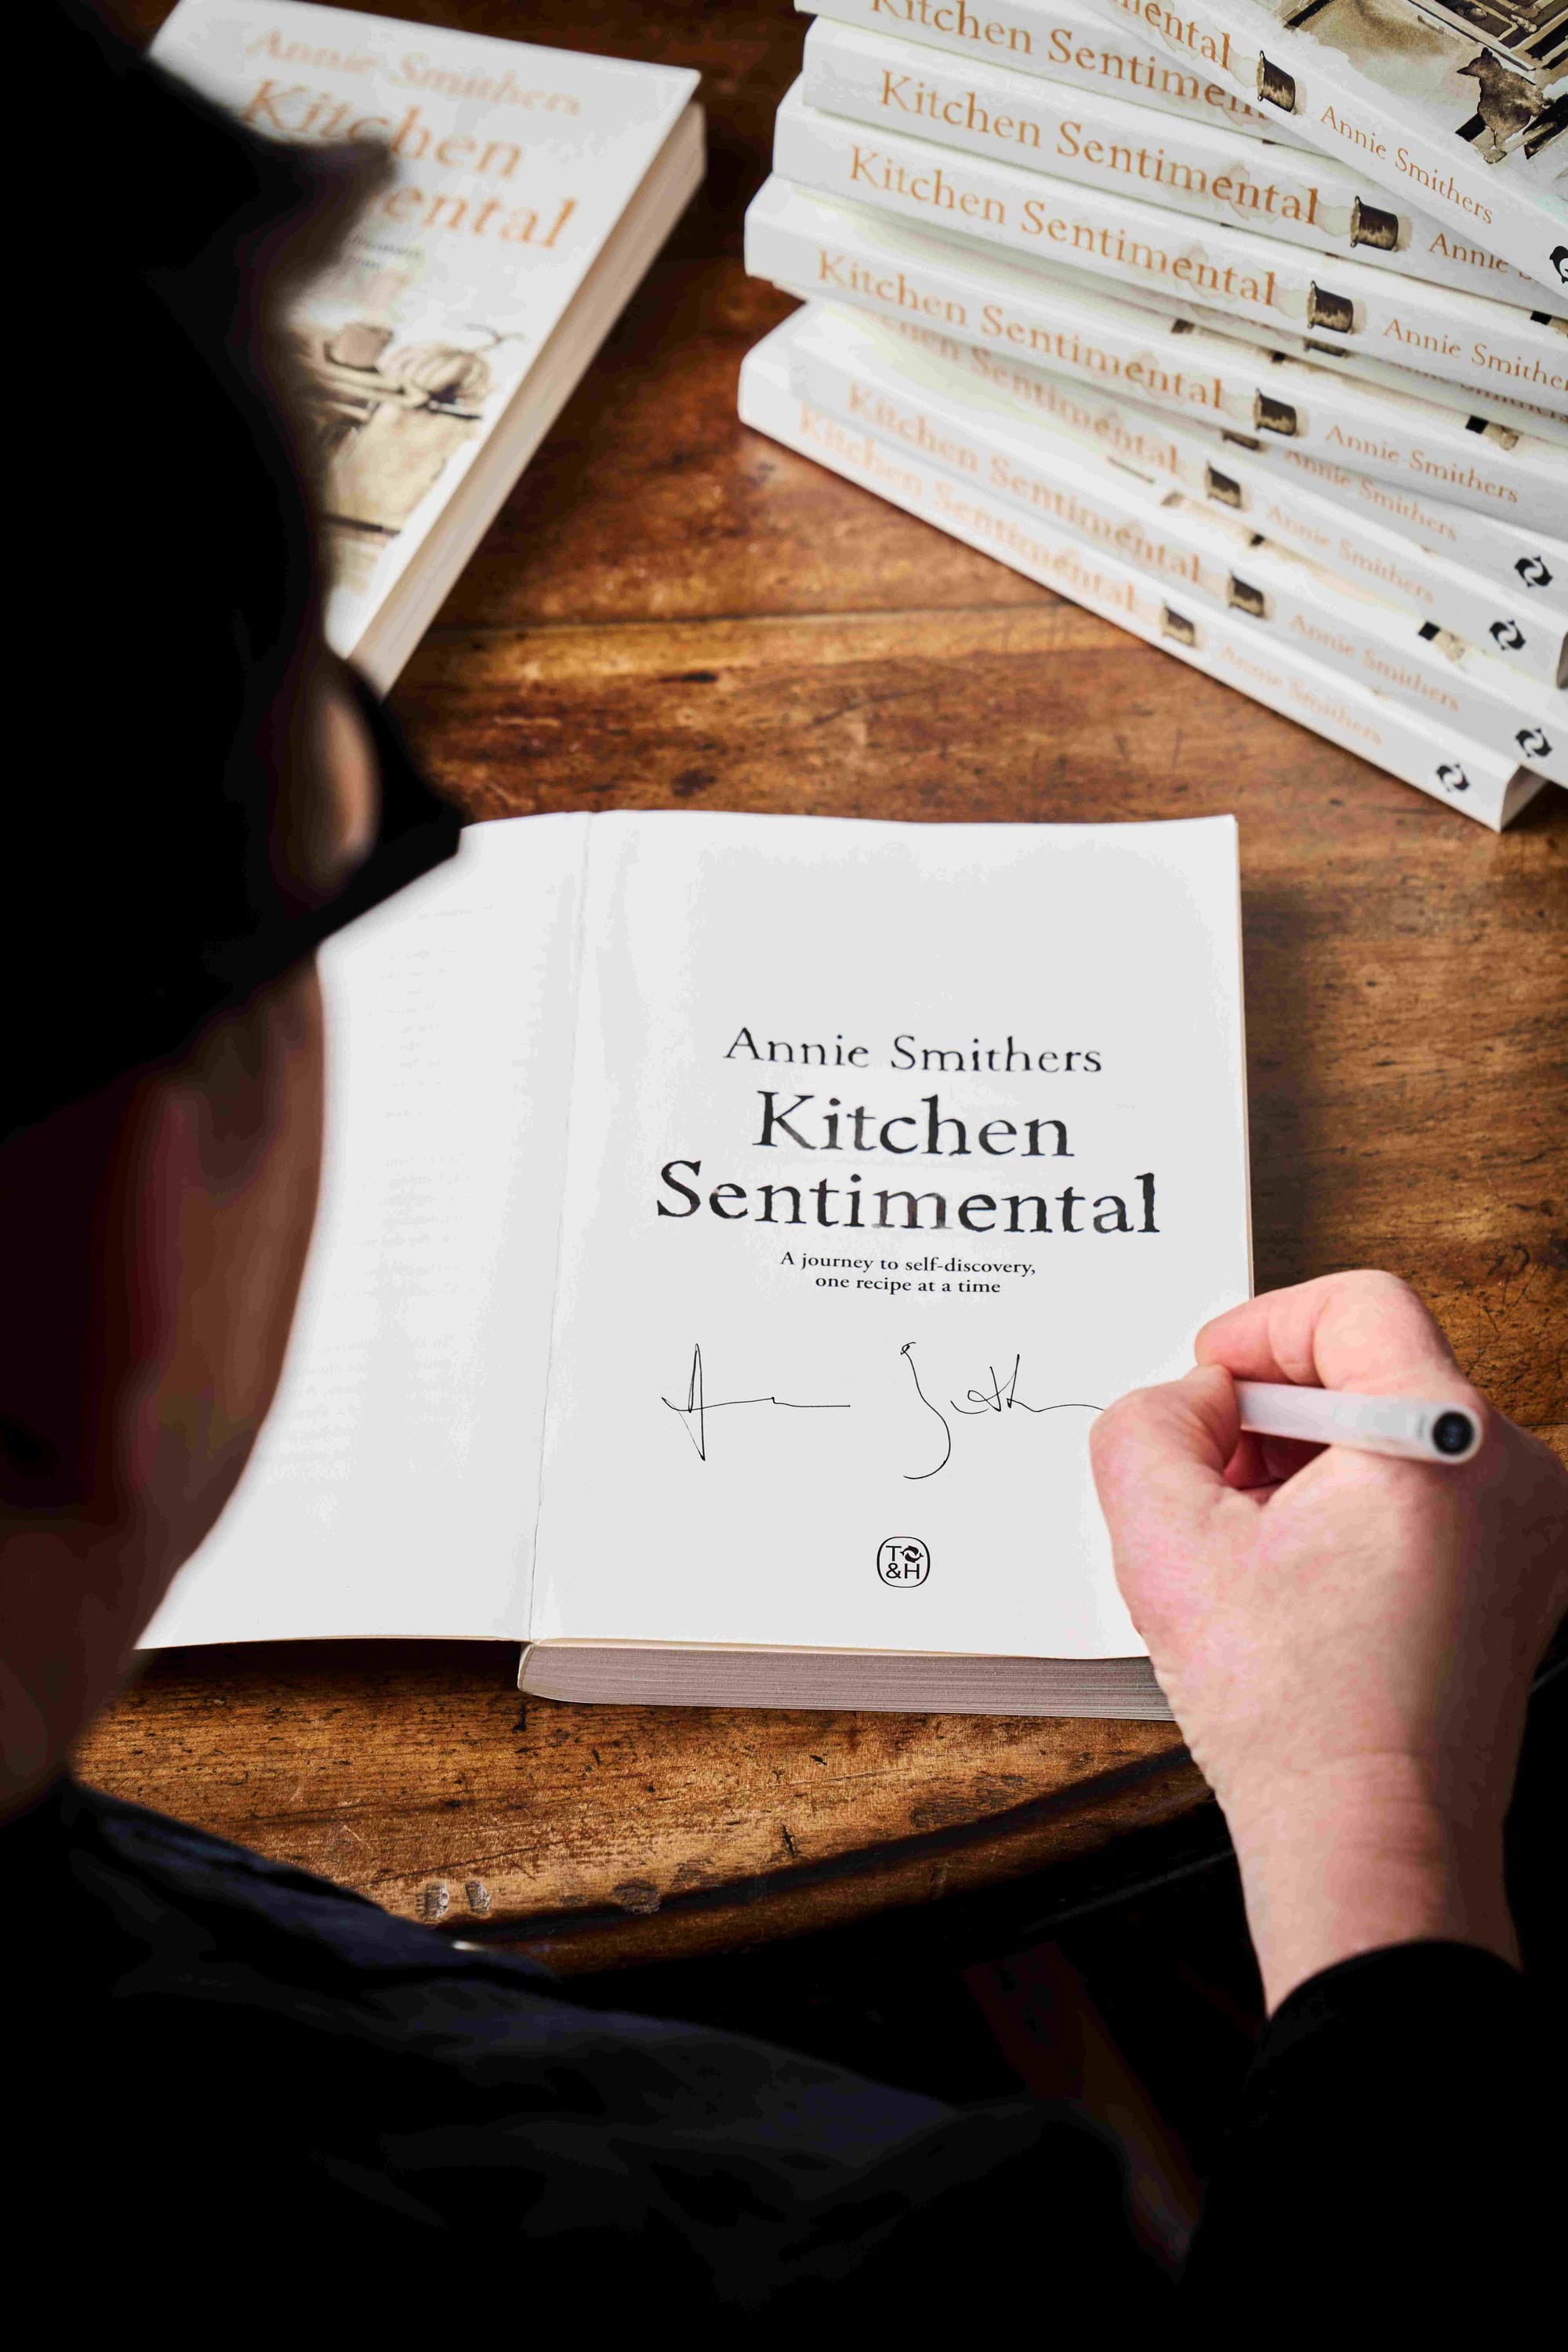 Annie Smithers
Kitchen
ental
mental
Annie Smithers
Kitchen Sentimen
Kitchen Sentimental
Annie
Kitchen Sentimental
Annie Smithe
Kitchen Sentimental
Annie Smithers
Sentimental
Annie Smithers
Kitchen Sentimental
Annie Smithers
Kitchen Sentimental
Annie Smithers
Annie Smithers
Annie Smithers
Kitchen
Sentimental
A journey to self-discovery,
one recipe at a time
T
&H